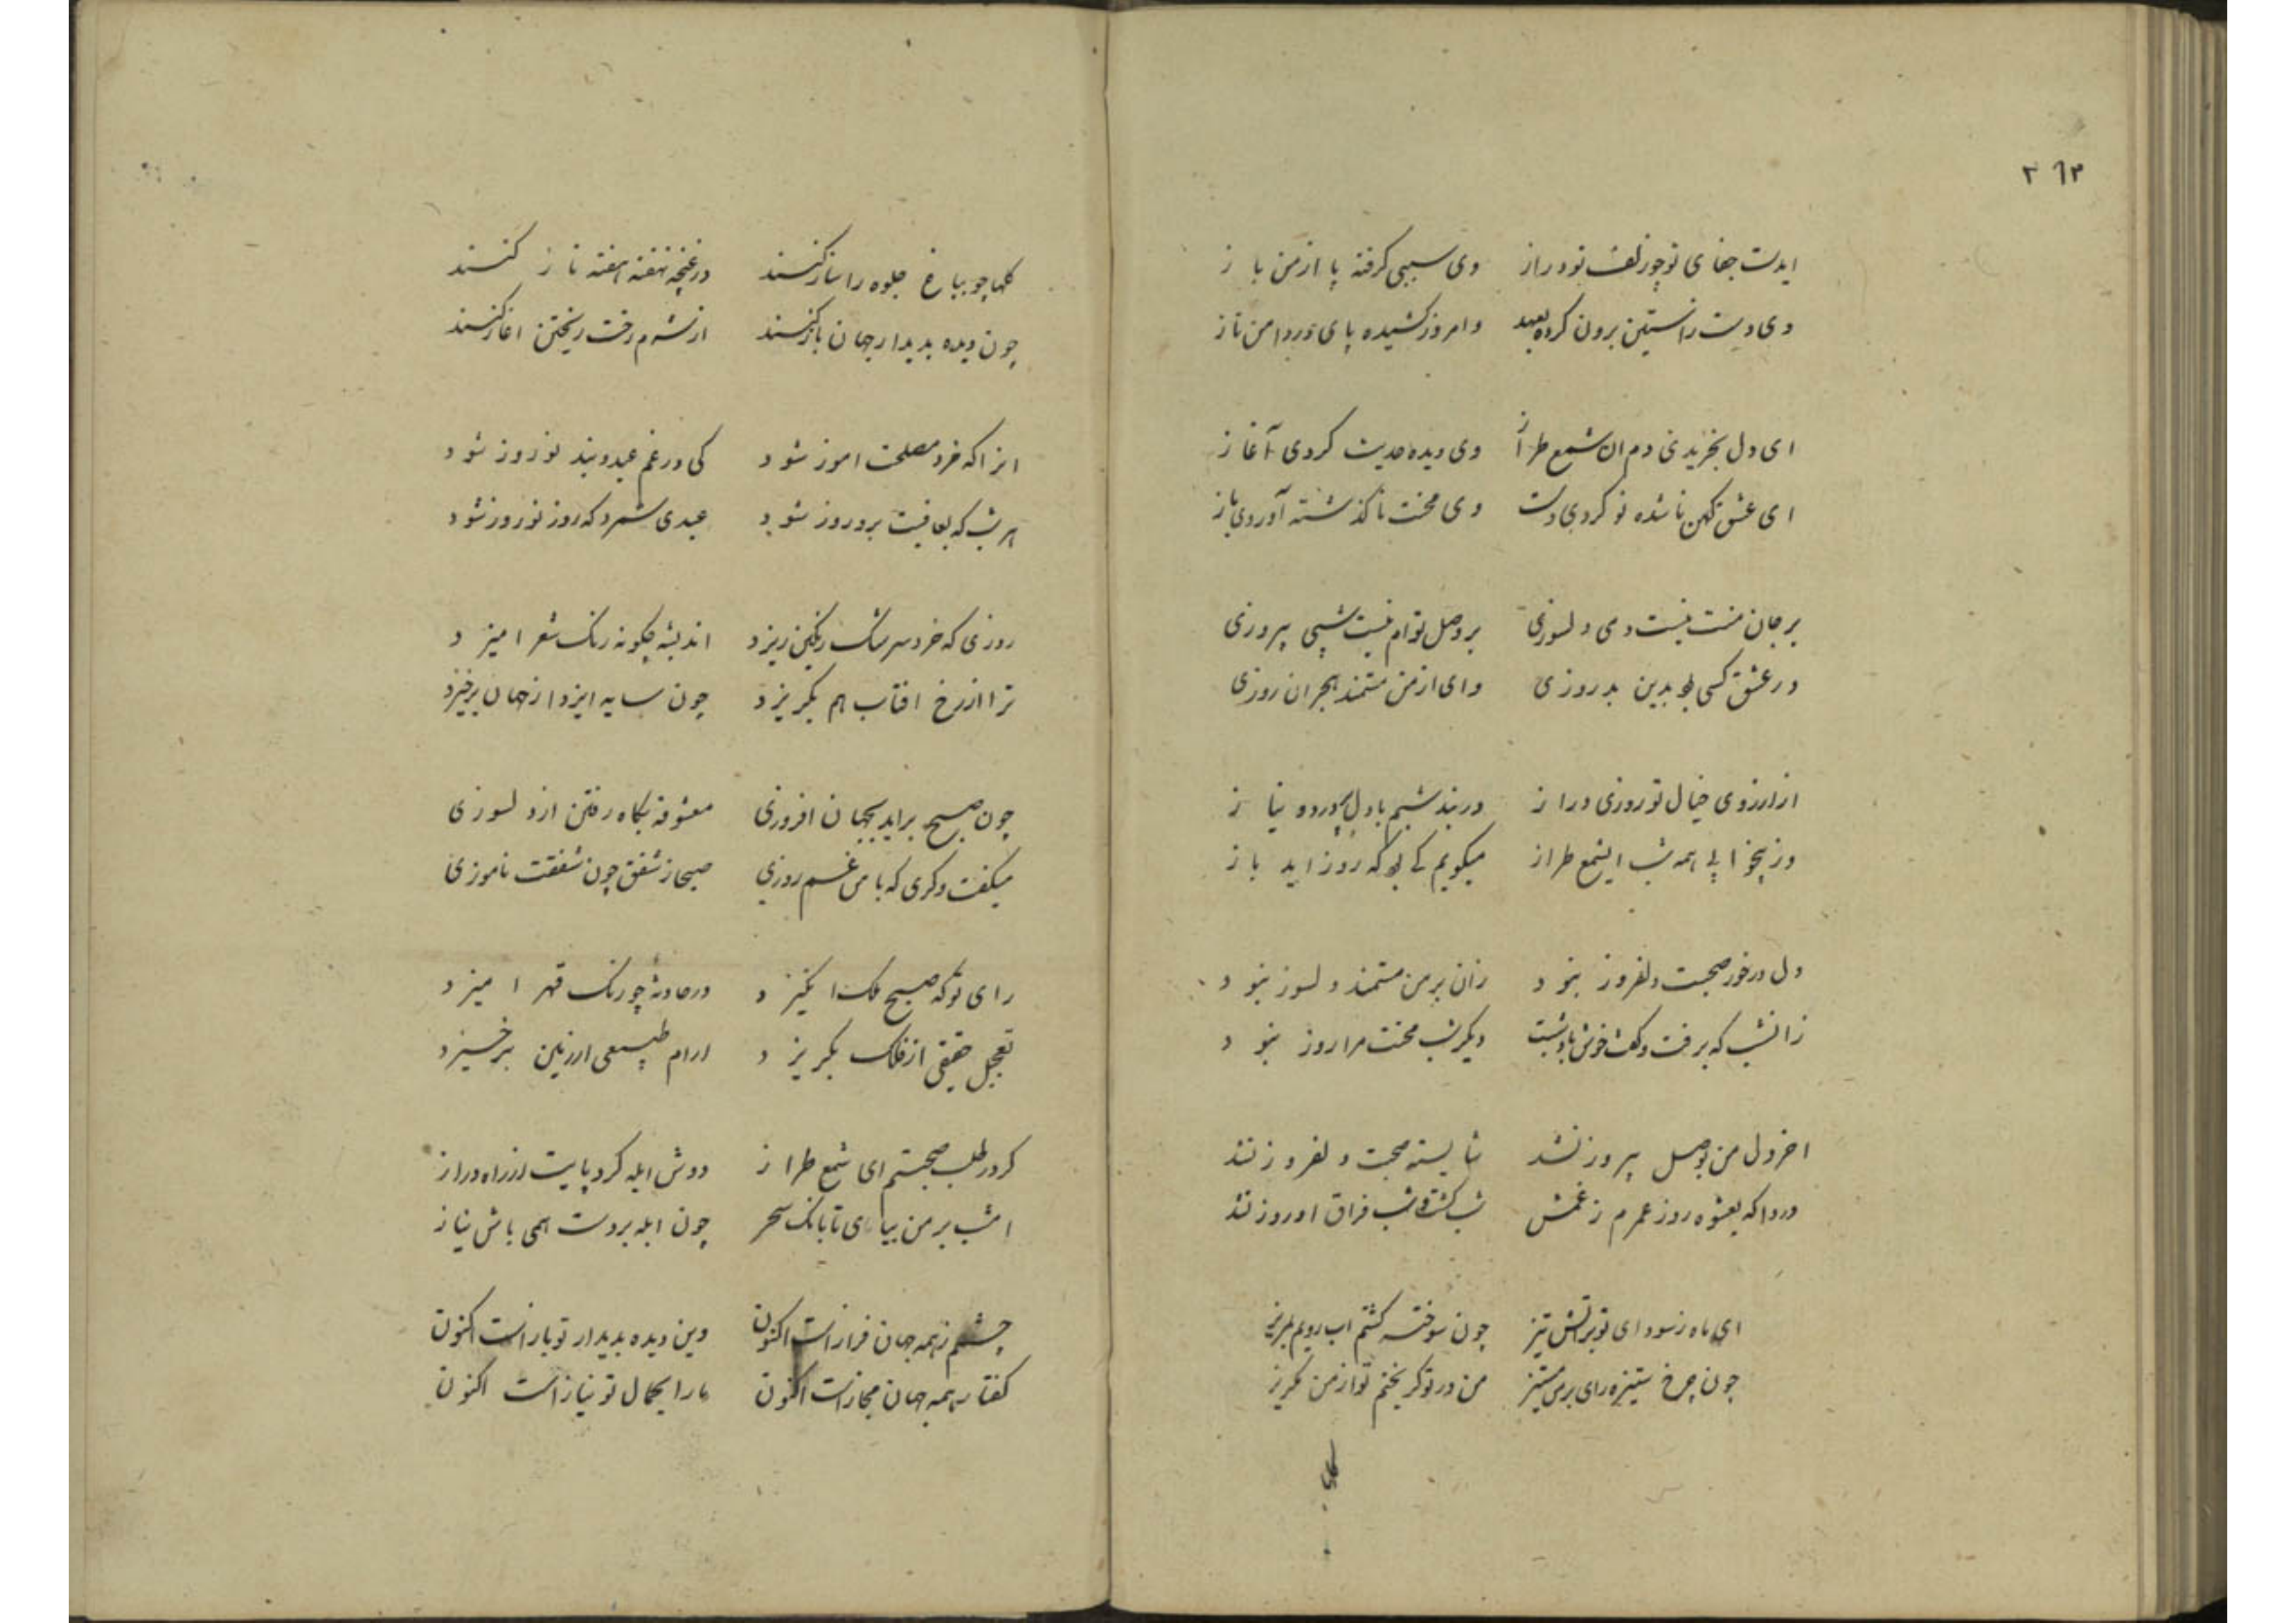 ۳۶۳
ایدست جفای تو چو زلف تو دراز وی بی سببی گرفته پا از من باز
دی دست زاستین برون کرده بعهد وامروز کشیده پای در دامن ناز
ای دل بخریدی دم آن شمع طراز وی دیده حدیث کردی آغاز
ای عشق کهن ناشده نو کردی دست وی محنت ناگذشته آوردی باز
بر جان منت نیست دمی دلسوزی بر وصل توام نیست شبی پیروزی
در عشق کسی بود بدین بد روزی وای از من مستمند هجران روزی
از ارزوی خیال تو روزی دراز در بند شبم با دل پر درد و نیاز
وز بیخوابی همه شب ای شمع طراز میکویم کی بود که روز اید باز
دل در خور صحبت دلفروز نبود زان بر من مستمند دلسوز نبود
زانشب که برفت و گفت خوش باد شبت دیگر شب محنت مرا روز نبود
اخر دل من بوصل پیروز نشد شایسته صحبت دلفروز نشد
دردا که بعشوه روز عمرم ز غمش شب گشت و شب فراق او روز نشد
ای ماه ز سودای تو بر اتش تیز چون سوخته گشتم اب رویم بمریز
چون چرخ ستیزه رای بر من مستیز من در تو گریختم تو از من مگریز
گلها چو بباغ جلوه را ساز کنند در غنچه نهفته هفته ناز کنند
چون دیده بدیدار جهان باز کنند از شرم رخت ریختن اغاز کنند
انرا که خرد مصلحت اموز شود کی در غم عید و بند نوروز شود
هر شب که بعافیت برو روز شود عیدی شمرد که روز نوروز شود
روزی که خرد سرشک رنگین ریزد اندیشه چگونه رنگ شعر امیزد
ترا از رخ افتاب هم بگریزد چون سایه ایزد از جهان برخیزد
چون صبح براید بجهان افروزی معشوقه بگاه رفتن از دلسوزی
میگفت دگری که با من غم روزی صبحا ز شفق چون شفقت ناموزی
رای تو که صبح ملک انگیزد در حادثه چو رنگ قهر امیزد
تعجیل حقیقی از فلک بگریزد ارام طبیعی از زمین برخیزد
گر در طلب صحبتم ای شمع طراز دوش ابله کرد پایت از راه دراز
امشب بر من بیای تا بانک سحر چون ابله بر دست همی باش بناز
چشمم ز همه جهان فراز است اکنون وین دیده بدیدار تو باز است اکنون
گفتار همه جهان مجاز است اکنون ما را بجمال تو نیاز است اکنون
گلها